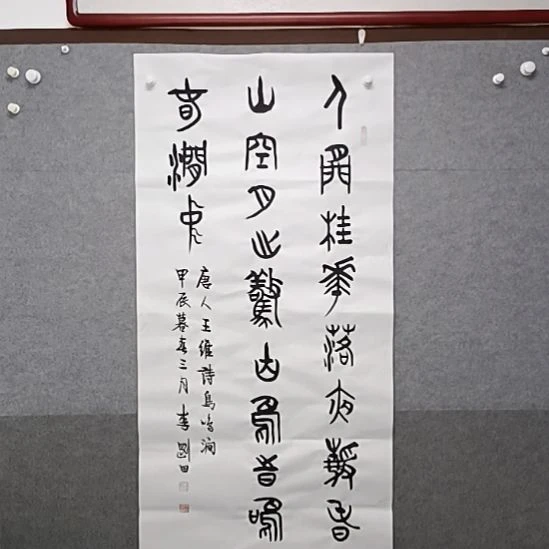 人閒桂華落夜靜春
山空月出驚山鳥時鳴
春澗中
唐人王維詩鳥鳴澗
甲辰暮春三月